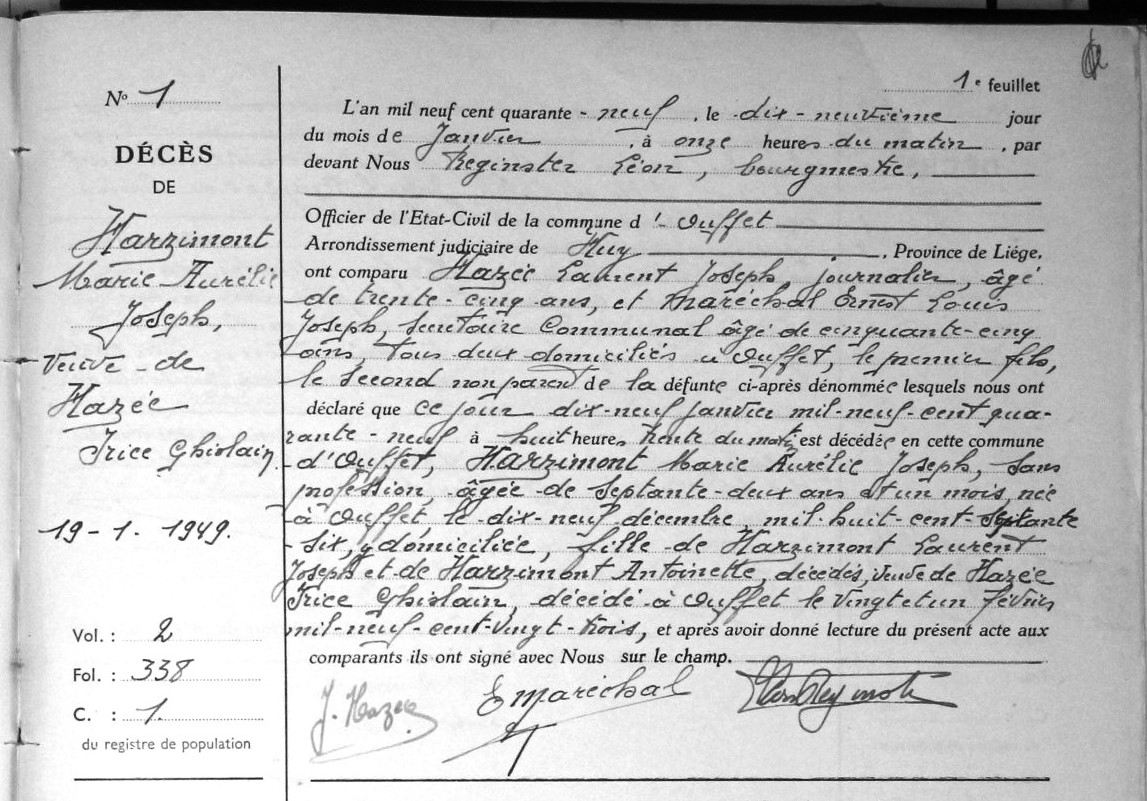 1e feuillet
No 1
DÉCÈS
DE
Harzimont
Marie Aurélie
Joseph,
Veuve de
Hazée
Trice Ghislain
19-1. 1949.
Vol. : 2
Fol. : 338
C. : 1.
du registre de population
L'an mil neuf cent quarante-neuf, le dix-neuvième jour
du mois de Janvier, à onze heures du matin, par
devant Nous Reginster Léon, bourgmestre,
Officier de l'Etat-Civil de la commune d'Ouffet
Arrondissement judiciaire de Huy, Province de Liége,
ont comparu Hazée Laurent Joseph, journalier, âgé
de trente-cinq ans, et Maréchal Ernest Louis
Joseph, Secrétaire Communal âgé de cinquante-cinq
ans, tous deux domiciliés à Ouffet, le premier fils,
le second non parent de la défunte ci-après dénommée lesquels nous ont
déclaré que ce jour dix-neuf janvier mil-neuf-cent qua-
rante-neuf à huit heures trente du matin est décédée en cette commune
d'Ouffet, Harzimont Marie Aurélie Joseph, sans
profession, âgée de septante-deux ans et un mois, née
à Ouffet, le dix-neuf décembre mil-huit-cent-septante
-six, y domiciliée, fille de Harzimont Laurent
Joseph et de Harzimont Antoinette, décédés, veuve de Hazée
Trice Ghislain, décédé à Ouffet le vingt et un février
mil-neuf-cent-vingt-trois, et après avoir donné lecture du présent acte aux
comparants ils ont signé avec Nous sur le champ.
J. Hazée E Maréchal